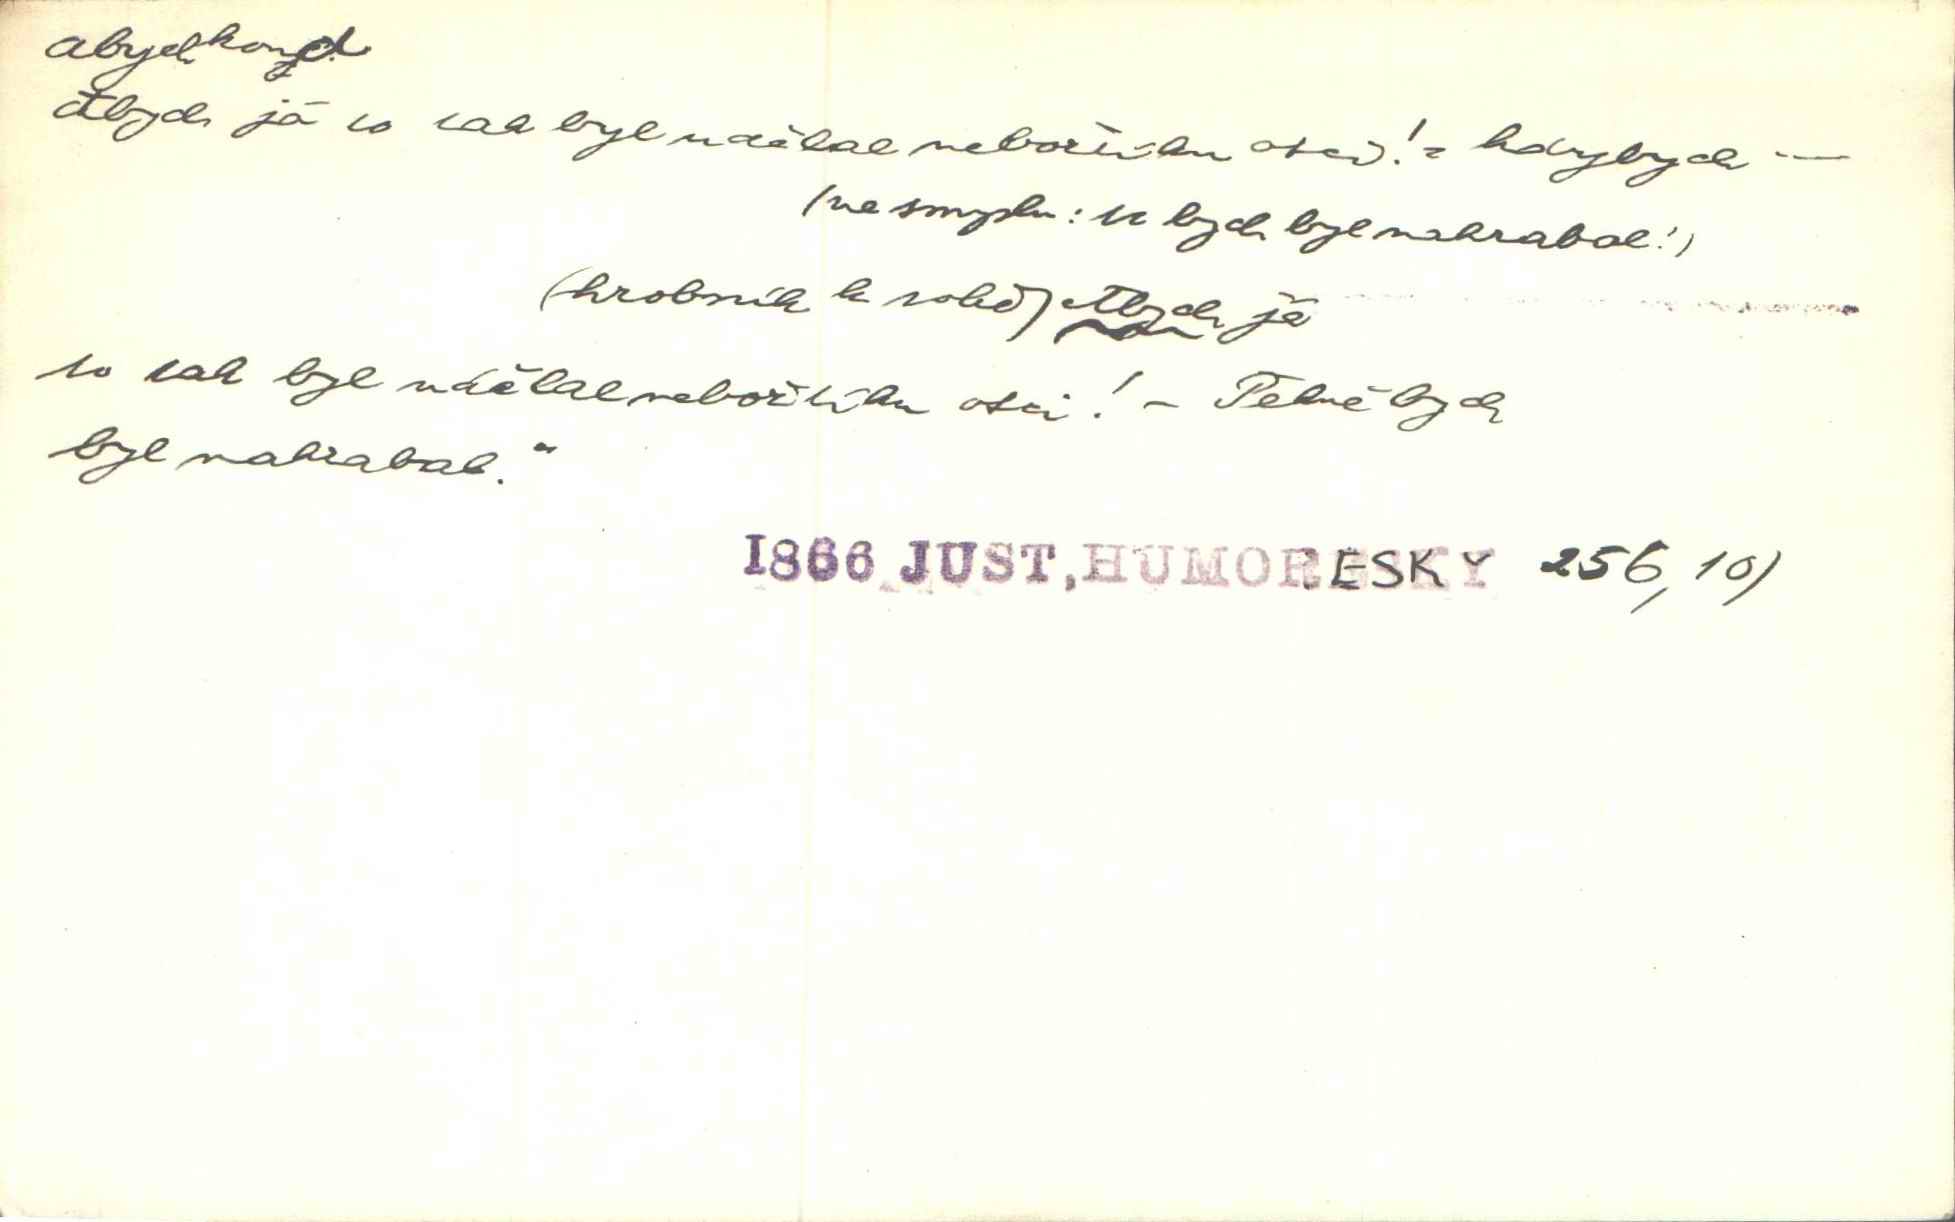 abych konj.
Abych já to tak byl udělal nebožtíku otci! = kdybych —
(ve smyslu: to bych byl nakrabal!)
(hrobník k sobě) Abych já
to tak byl udělal nebožtíku otci! – Pěkně bych
byl nakrabal.“
1866 JUST, HUMORESKY 256, 10)